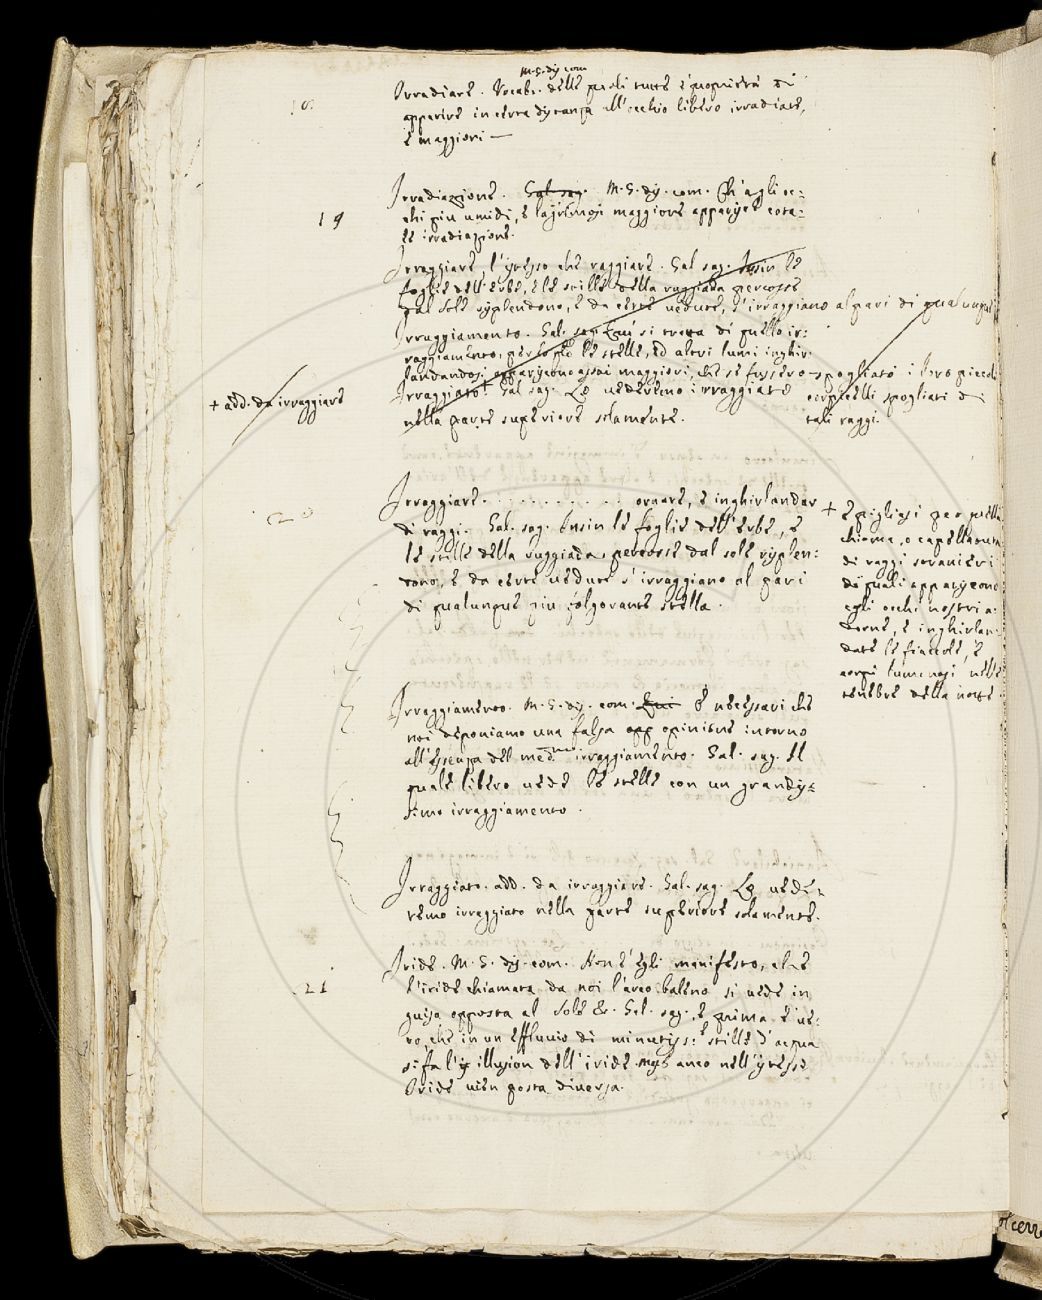 M.S. dis. com.
Irradiare. Vocab. delle quali tutte è proprietà di
apparire in certa distanza all'occhio libero irradiate,
e maggiori —
Irradiazione. Gal. sag. M.S. dis. com. Ch' agli oc=
19
chi piu umidi, e lagrimosi maggiore apparisce cota=
le irradiazione.
Irraggiare, l'istesso che raggiare. Gal. sag. Insin le
foglie dell'erbe, e le stille della rugiada percosse
dal sole risplendono, e da certe vedute, s'irraggiano al pari di qualunque
Irraggiamento. Gal. sag. Qui si tratta di quello ir=
raggiamento, per lo che le stelle, ed altri lumi inghir=
landandosi appariscono assai maggiori, che se fussero spogliato i loro piccoli
corpicelli spogliati di
tali raggi.
+ add. da irraggiare
Irraggiato + Gal sag. Lo vederemo irraggiato
nella parte superiore solamente.
Irraggiare. . . . . . . . . . . ornare, e inghirlandar +
di raggi. Gal. sag. Insin le foglie dell'erbe, e
20
le stille della ruggiada percosse dal sole risplen=
dono, e da certe vedute s'irraggiano al pari
di qualunque piu folgorante stella.
+ e pigliasi per quella
chioma, o capellatura
di raggi stranieri
de quali appariscono
agli occhi nostri a=
dorne, e inghirlan=
date le fiaccole, e
corpi luminosi nelle
tenebre della notte.
Irraggiamento. M.S. dis. com. Qui È necessario che
noi deponiamo una falsa opp opinione intorno
all'essenza del med.mo irraggiamento. Gal. sag. Il
quale libero vede le stelle con un grandis=
simo irraggiamento.
Irraggiato. add. da irraggiare. Gal. sag. Lo vede=
remo irraggiato nella parte superiore solamente.
Iride. M.S. dis. com. Non è egli manifesto, che
21
l'iride chiamata da noi l'arco baleno si vede in
guisa opposta al Sole &c. Gal. sag. e prima è ve=
ro, che in un effluvio di minutiss:e stille d'acqua
si fa l'is illusion dell'iride. mg anco nell'istesse
Iride vien posta diversa.